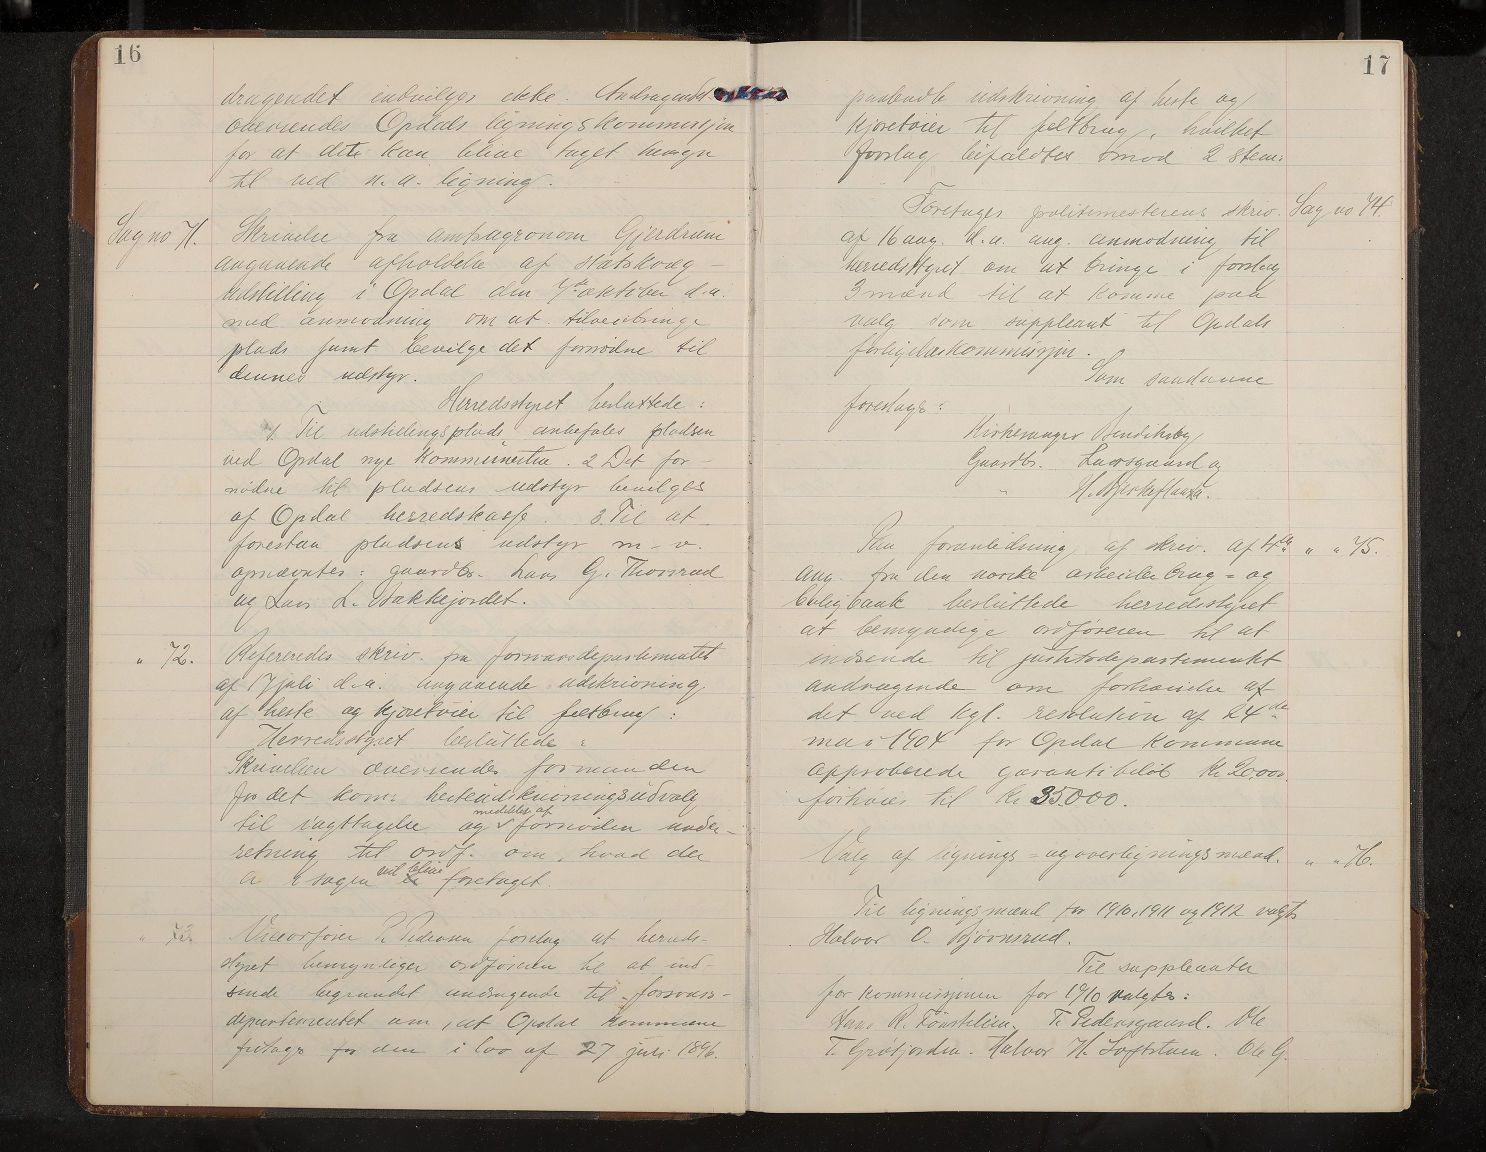 16
dragendet indvilges ikke. Andragendet
oversendes Opdals ligningskommissjon
for at dette kan blive taget hensyn
til ved n. a. ligning.
Sag no 71. Skrivelse fra amtsagronom Gjerdrum
angaaende afholdelse af statskvæg-
udstilling i Opdal den 7de oktober d.a.
med anmodning om at tilveiebringe
plads samt bevilge det fornødne til
dennes udstyr.
Herredsstyret besluttede:
1. Til udstillingsplads anbefales pladsen
ved Opdal nye kommunestue. 2 Det for-
nødne til pladsens udstyr bevilges
af Opdal herredskasse. 3. Til at
forestaa pladsens udstyr m. v.
opnævntes: gaardbr. Lars G. Thorsrud
og Lars L. Bakkejordet.
" 72. Refereredes skriv. fra forsvarsdepartementet
af 17 juli d.a. angaaende udskrivning
af heste og kjøretøier til feltbrug:
Herredsstyret besluttede:
Skrivelsen oversendes formanden
for det kom. hesteudskrivningsudvalg
til iagttagelse og meddelelse af fornøden under-
retning til ordf. om, hvad der
i sagen vil blive foretaget.
" 73. Viceordfører P. Pedersen foreslog at herreds-
styret bemyndiger ordføreren til at ind-
sende begrundet andragende til forsvars-
departementet om, at Opdal kommune
fritages for den i lov af 27 juli 1896.
17
paabudte udskrivning af heste og
kjøretøier til feltbrug, hvilket
forslag bifaldtes imod 2 stem.
Foretages politimesterens skriv. Sag no 74.
af 16 aug. d.a. ang. anmodning til
herredsstyret om at bringe i forslag
3 mænd til at komme paa
valg som suppleant til Opdals
forligelseskommissjon.
Som saadanne
foreslaaes:
Kirkesanger Bendiksby
Gaardbr. Laarsgaard og
" H. Bjerkeflaata.
Paa foranledning af skriv. af 4de " " 75.
aug. fra den norske arbeiderbrug- og
boligbank besluttede herredsstyret
at bemyndige ordføreren til at
indsende til justitsdepartementet
andragende om forhøielse af
det ved kgl. resolution af 24de
mai 1904 for Opdal kommune
approberede garantibeløb Kr 20,000
forhøies til Kr 35000.
Valg af lignings- og overligningsmænd. " " 76.
Til ligningsmænd for 1910, 1911 og 1912 valgtes
Halvor O. Bjørnsrud.
Til suppleanter
for kommissjonen for 1910 valgtes:
Hans R. Tønsteien. T. Pedersgaard. Ole
T. Grøtjorden. Halvor H. Toftstuen. Ole G.